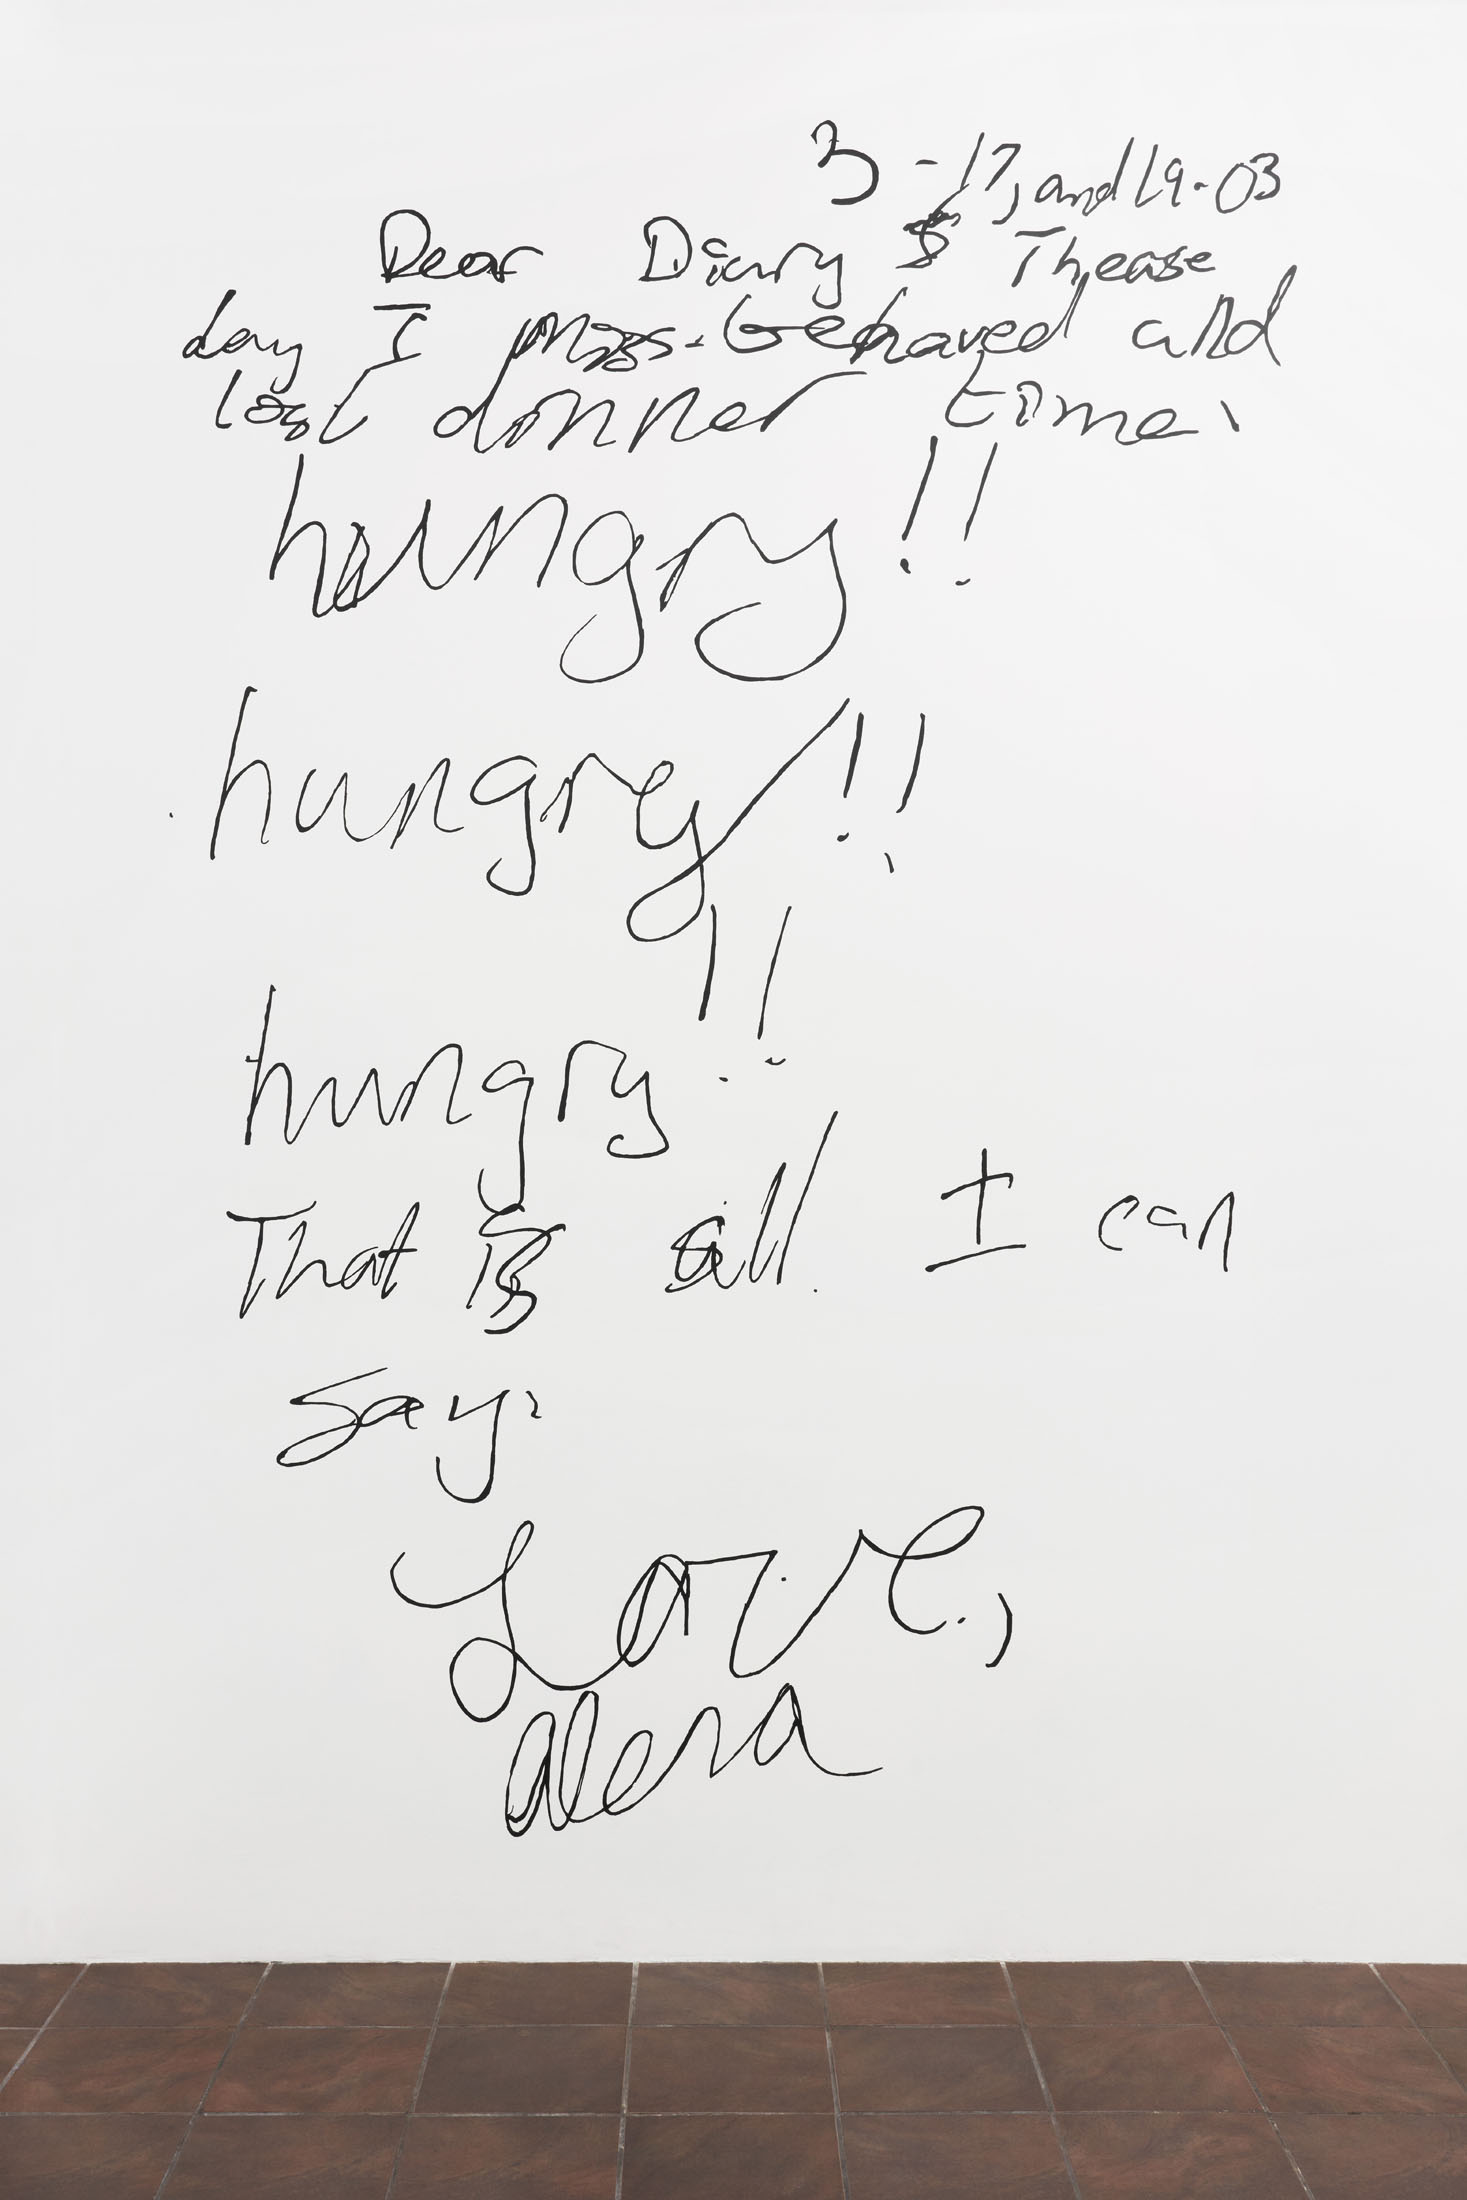 3-17, and 19-03
Dear Diary Thease
day I miss-behaved and
lost dinner time.
hungry!!
hungrey!!
hungry!!
That is all I can
say.
Love,
alexa